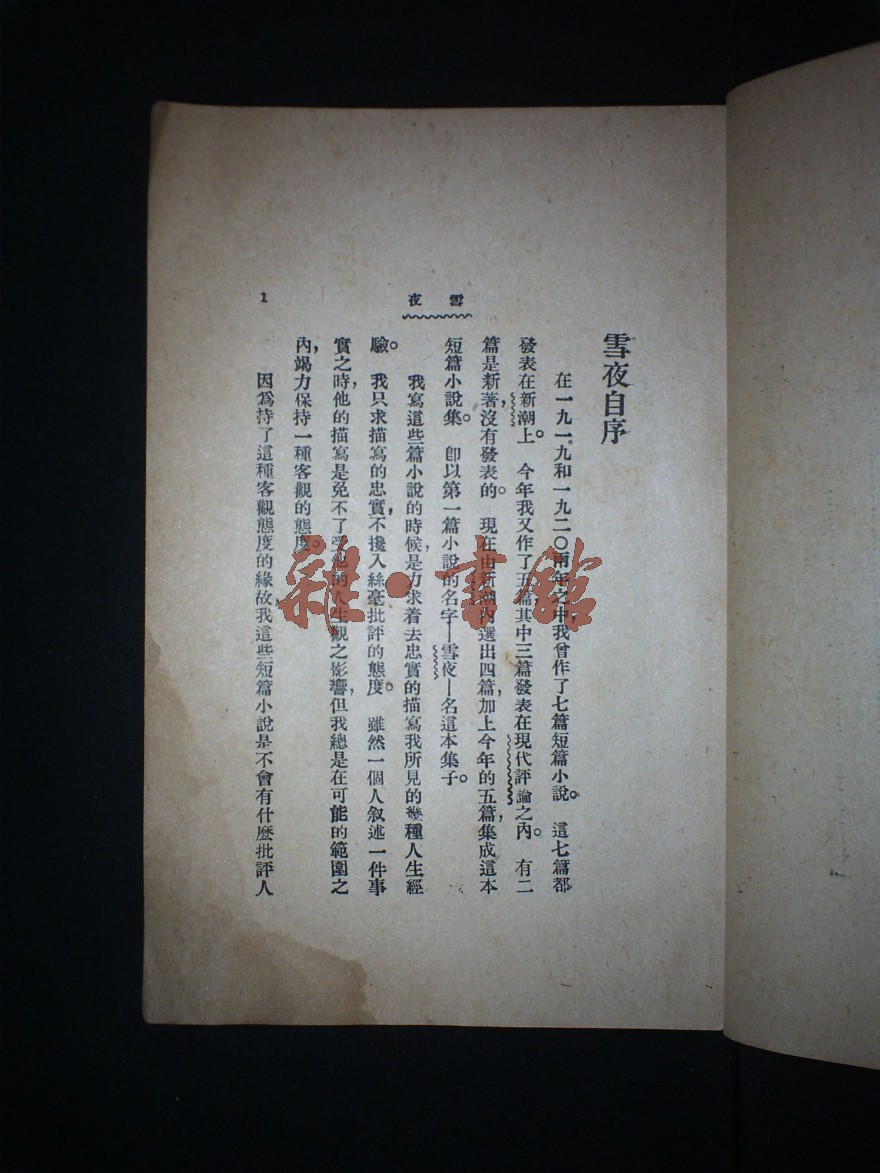 雪夜自序
在一九一九和一九二〇兩年之中，我曾作了七篇短篇小說。 這七篇都
發表在新潮上。 今年我又作了五篇其中三篇發表在現代評論之內。 有二
篇是新著，沒有發表的。 現在由新潮內選出四篇，加上今年的五篇，集成這本
短篇小說集。 卽以第一篇小說的名字—雪夜—名這本集子。
我寫這些篇小說的時候，是力求着去忠實的描寫我所見的幾種人生經
驗。 我只求描寫的忠實，不攙入絲毫批評的態度。 雖然一個人叙述一件事
實之時，他的描寫是免不了受他的人生觀之影響，但我總是在可能的範圍之
內，竭力保持一種客觀的態度。
因爲持了這種客觀態度的緣故，我這些短篇小說是不會有什麼批評人
雪夜
1
雜·書館